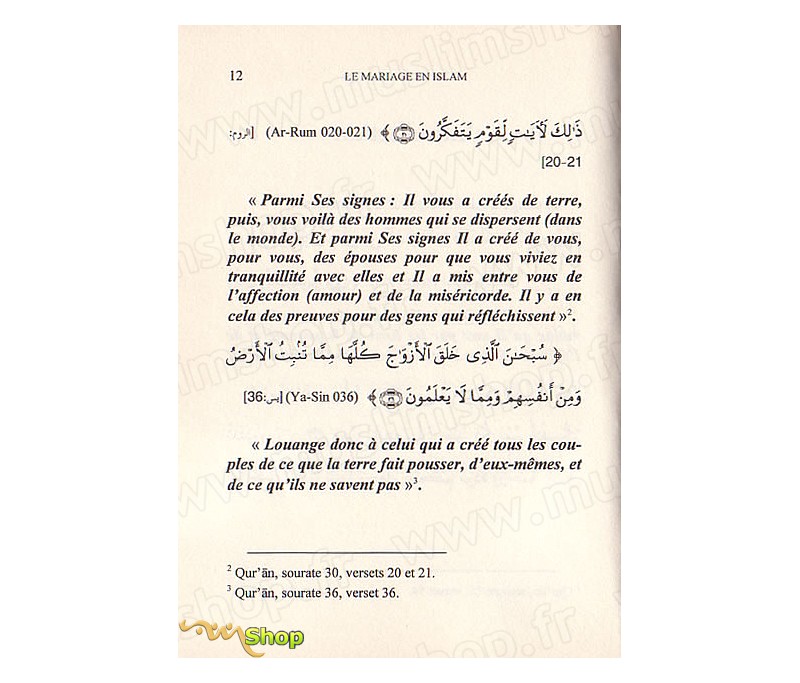 12 LE MARIAGE EN ISLAM
ذَٰلِكَ لَأَيَـٰتٍ لِّقَوْمٍ يَتَفَكَّرُونَ ﴿٢١﴾ ﴾ (Ar-Rum 020-021) [الروم:
20-21]
« Parmi Ses signes : Il vous a créés de terre,
puis, vous voilà des hommes qui se dispersent (dans
le monde). Et parmi Ses signes Il a créé de vous,
pour vous, des épouses pour que vous viviez en
tranquillité avec elles et Il a mis entre vous de
l’affection (amour) et de la miséricorde. Il y a en
cela des preuves pour des gens qui réfléchissent »².
﴿ سُبْحَـٰنَ ٱلَّذِى خَلَقَ ٱلْأَزْوَٰجَ كُلَّهَا مِمَّا تُنۢبِتُ ٱلْأَرْضُ
وَمِنْ أَنفُسِهِمْ وَمِمَّا لَا يَعْلَمُونَ ﴿٣٦﴾ ﴾ (Ya-Sin 036) [يس:36]
« Louange donc à celui qui a créé tous les cou-
ples de ce que la terre fait pousser, d’eux-mêmes, et
de ce qu’ils ne savent pas »³.
² Qur’ān, sourate 30, versets 20 et 21.
³ Qur’ān, sourate 36, verset 36.
Shop
www.muslimshop.fr